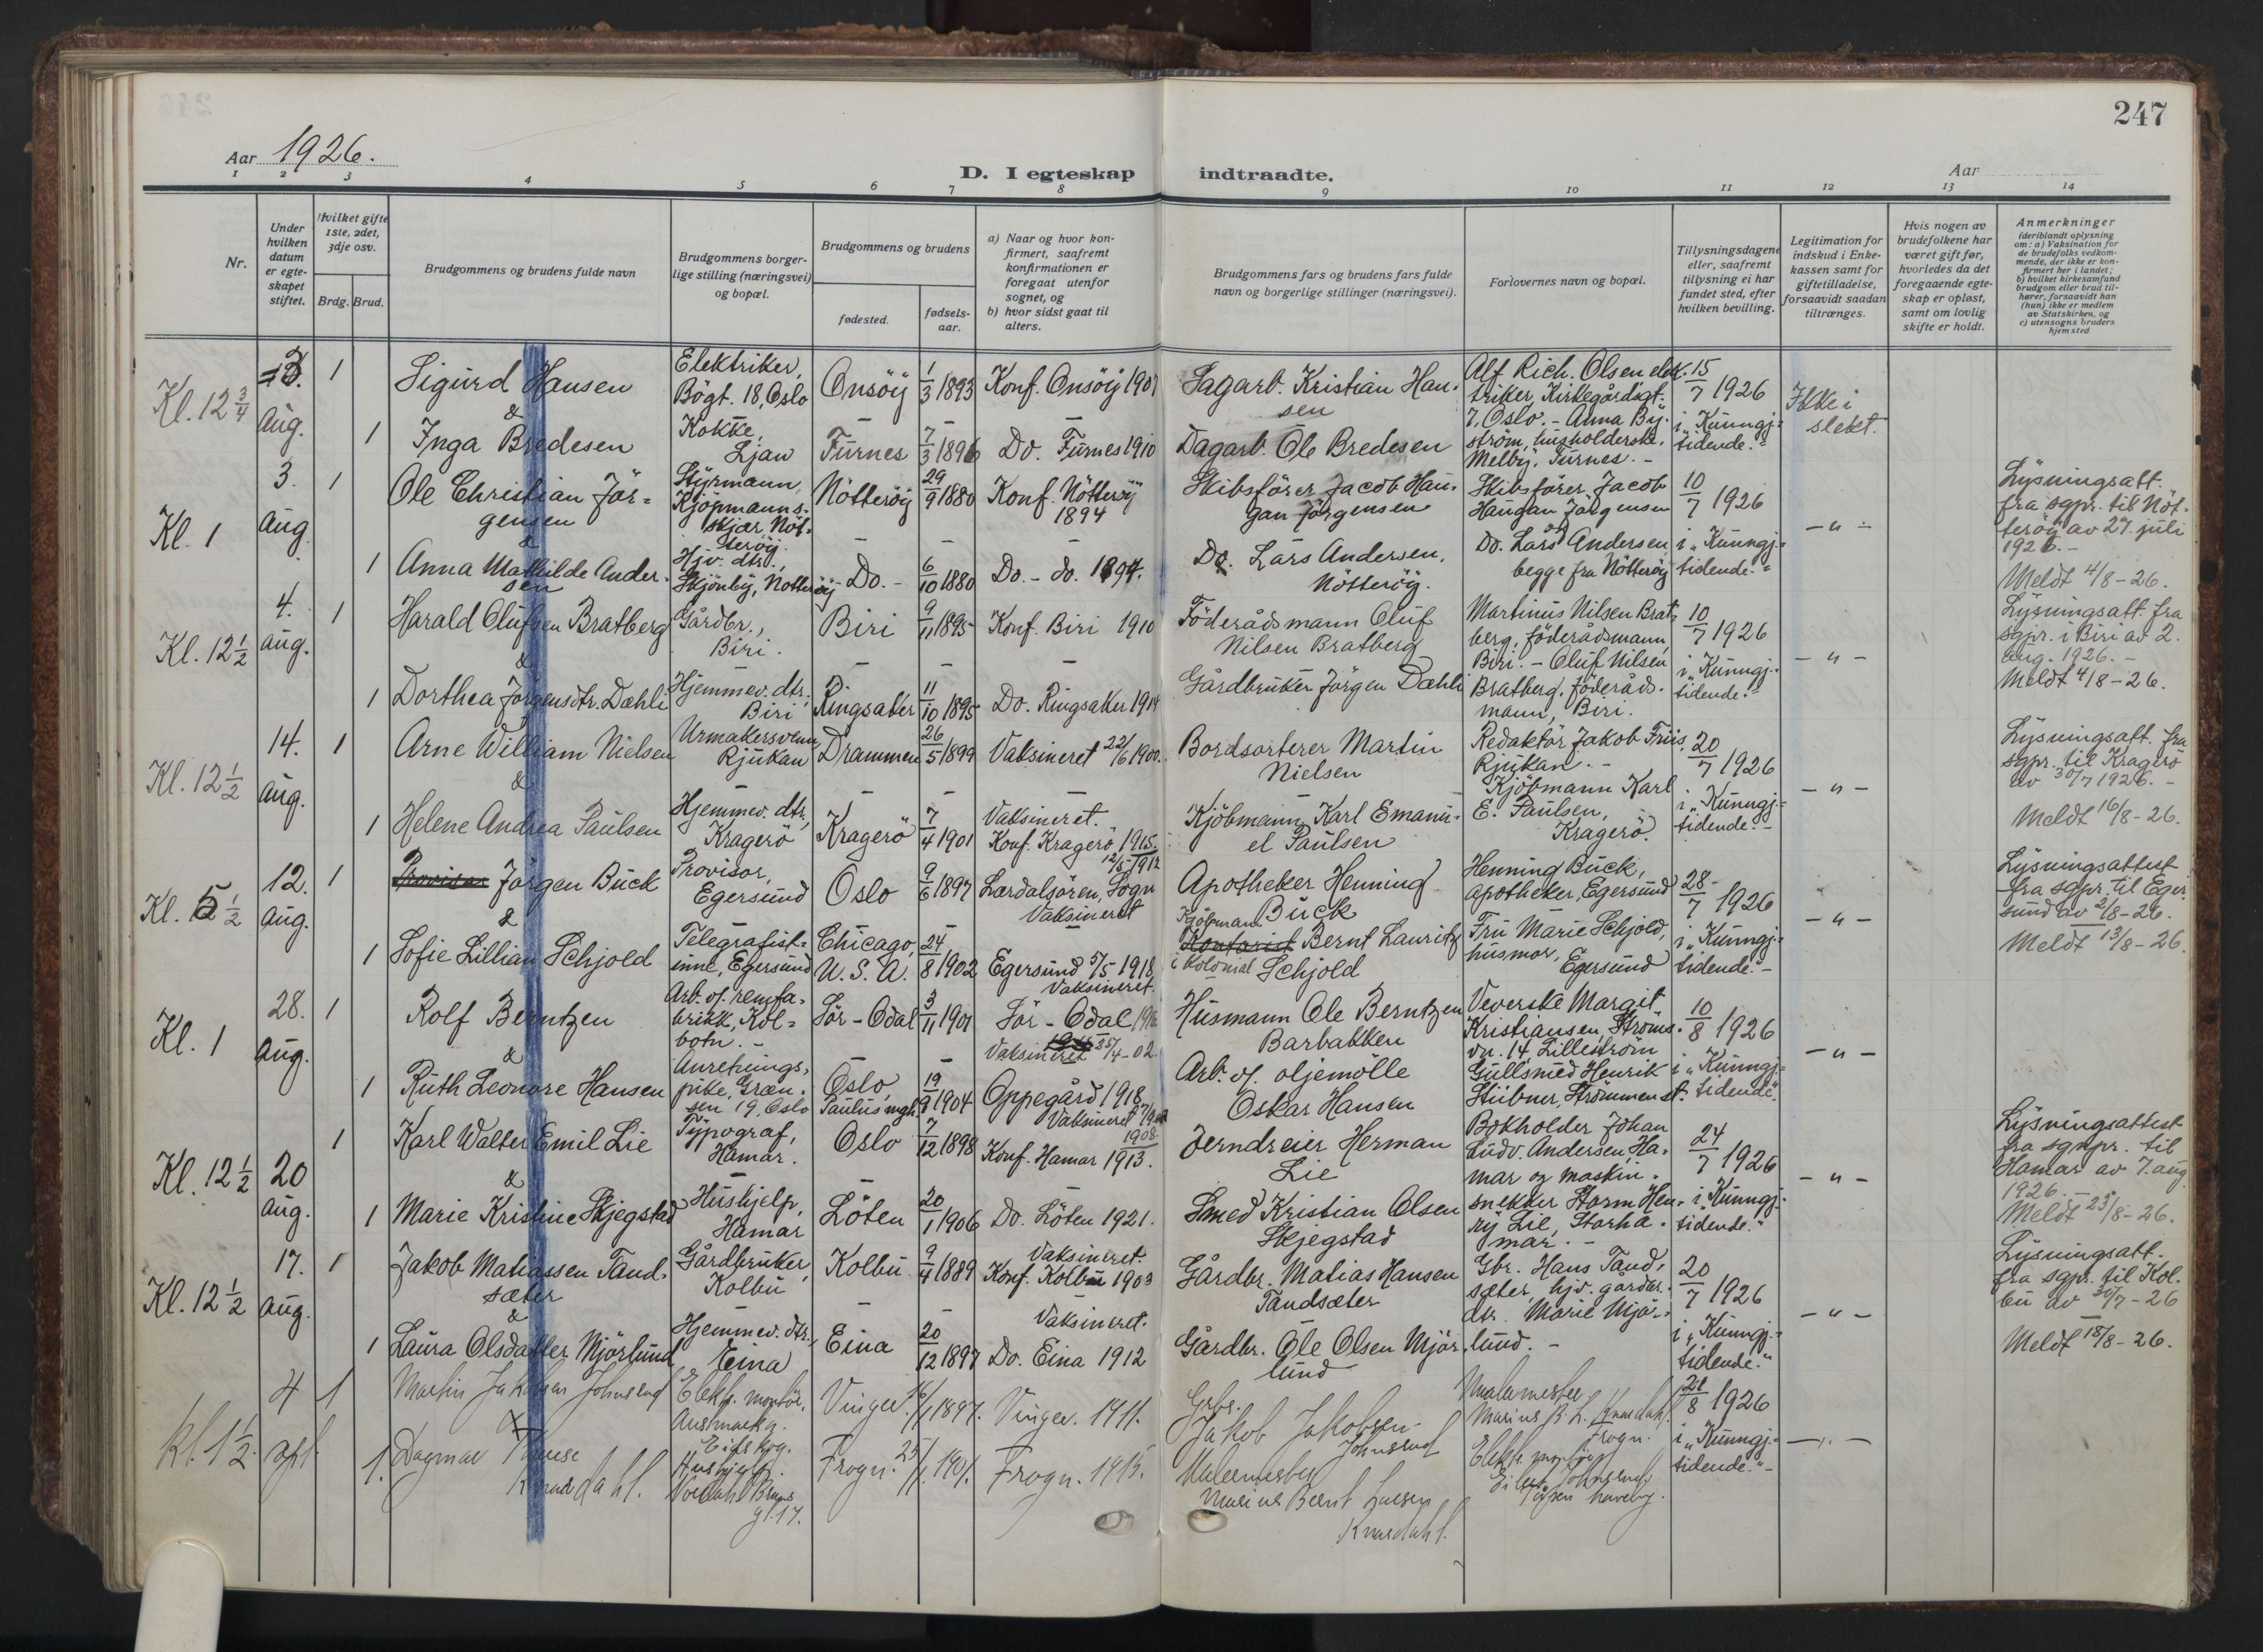 247
Aar 1926.
D. I egteskap indtraadte.
Aar
1 2 3 4 5 6 7 8 9 10 11 12 13 14
Nr.
Under hvilken datum er egteskapet stiftet.
Hvilket gifte 1ste, 2det, 3dje osv.
Brdg. Brud.
Brudgommens og brudens fulde navn
Brudgommens borgerlige stilling (næringsvei) og bopæl.
Brudgommens og brudens
fødested.
fødselsaar.
a) Naar og hvor konfirmert, saafremt konfirmationen er foregaat utenfor sognet, og
b) hvor sidst gaat til alters.
Brudgommens fars og brudens fars fulde navn og borgerlige stillinger (næringsvei).
Forlovernes navn og bopæl.
Tillysningsdagene eller, saafremt tillysning ei har fundet sted, efter hvilken bevilling.
Legitimation for indskud i Enkekassen samt for giftetilladelse, forsaavidt saadan tiltrænges.
Hvis nogen av brudefolkene har været gift før, hvorledes da det foregaaende egteskap er opløst, samt om lovlig skifte er holdt.
Anmerkninger
(deriblandt oplysning om: a) Vaksination for de brudefolks vedkommende, der ikke er konfirmert her i landet; b) hvilket kirkesamfund brudgom eller brud tilhører, forsaavidt han (hun) ikke er medlem av Statskirken, og c) utensogns bruders hjemsted
Kl. 12 3/4 3. Aug. 1 Sigurd Hansen Elektriker, Bögt. 18, Oslo Onsöy 1/3 1893 Konf. Onsöy 1907 Sagarb. Kristian Hansen
Alf Rich. Olsen elektriker, Kirkegårdsgt. 7, Oslo. - Anna Byström, husholderske, Melby, Furnes. -
15/7 1926 i "Kunngj.tidende." Ikke i slekt.
&
1 Inga Bredesen Kokke, Ljan Furnes 7/3 1896 Do. Furnes 1910 Dagarb. Ole Bredesen
Kl. 1 3. Aug. 1 Ole Christian Jörgensen Styrmann, Kjöpmannsskjær, Nötteröy. Nötteröy 29/9 1880 Konf. Nötteröy 1894 Skibsförer Jacob Haugan Jörgensen
Skibsförer Jacob Haugan Jörgensen og Do. Lars Andersen, begge fra Nötteröy
10/7 1926 i "Kunngj.tidende." - " -
Lysningsatt. fra sgpr. til Nötteröy av 27. juli 1926. -
Meldt 4/8-26.
&
1 Anna Mathilde Andersen Hjv. dtr., Skjönby, Nötteröy - Do. - 6/10 1880 Do. - do. 1894. Do. Lars Andersen, Nötteröy.
Kl. 12 1/2 4. Aug. 1 Harald Olufsen Bratberg Gårdbr., Biri. Biri 9/11 1895 Konf. Biri 1910 Föderådsmann Oluf Nilsen Bratberg
Martinus Nilsen Bratberg, föderådsmann, Biri. - Oluf Nilsen Bratberg, föderådsmann, Biri.
10/7 1926 i "Kunngj.tidende." - " -
Lysningsatt. fra sgpr. i Biri av 2. aug. 1926. -
Meldt 4/8-26.
&
1 Dorthea Jörgensdtr. Dæhli Hjemmev. dtr., Biri Ringsaker 11/10 1895 Do. Ringsaker 1914 Gårdbruker Jörgen Dæhli
Kl. 12 1/2 14. Aug. 1 Arne William Nielsen Urmakersvenn, Rjukan Drammen 26/5 1899 Vaksineret 22/6 1900. Bordsorterer Martin Nielsen
Redaktör Jakob Friis, Rjukan. - Kjöbmann Karl E. Paulsen, Kragerö.
20/7 1926 i "Kunngj.tidende." - " -
Lysningsatt. fra sgpr. til Kragerö av 30/7 1926. -
Meldt 16/8-26.
&
1 Helene Andrea Paulsen Hjemmev. dtr., Kragerö Kragerö 7/4 1901 Vaksineret. Konf. Kragerö 1915. Kjöbmann Karl Emanuel Paulsen
Kl. 5 1/2 12. Aug. 1 Provisor Jörgen Buck Provisor, Egersund Oslo 9/6 1897 12/5 1912 Lærdalsören, Sogn Vaksineret Apotheker Henning Buck
Henning Buck, apotheker, Egersund Fru Marie Schjold, husmor, Egersund
28/7 1926 i "Kunngj.tidende." - - " -
Lysningsattest fra sgpr. til Egersund av 2/8-26.
Meldt 13/8-26.
&
1 Sofie Lillian Schjold Telegrafistinne, Egersund Chicago, U.S.A. 24/8 1902 Egersund 5/5 1918 Vaksineret. Kjöpmann i kolonial Kontorist Bernt Lauritz Schjold
Kl. 1 28. Aug. 1 Rolf Berntzen Arb. v. rempfabrikk, Kolbotn. - Sör-Odal 3/11 1901 Sör-Odal Vaksineret 25/4-02. Husmann Ole Berntzen Barbakken
Veverske Margit Kristiansen, Strömsvn. 14, Lilleström Gullsmed Henrik Stübner, Strömmen st.
10/8 1926 i "Kunngj.tidende." - " -
&
1 Ruth Leonore Hansen Anretningspike, Grænsen 19, Oslo Oslo, Paulus mgh. 19/9 1904 Oppegård 1918 Vaksineret Arb. v. oljemölle Oskar Hansen
Kl. 12 1/2 20 Aug. 1 Karl Walter Emil Lie Typograf, Hamar. Oslo 7/12 1898 1908. Konf. Hamar 1913. Jerndreier Herman Lie
Bokholder Johan Ludv. Andersen Hamar og maskinsnekker Storm Henry Lie, Storhamar. -
24/7 1926 i "Kunngj.tidende." - " -
Lysningsattest fra sgnpr. til Hamar av 7. aug. 1926. -
Meldt 23/8-26.
&
1 Marie Kristine Skjegstad Hushjelp, Hamar Löten 20/1 1906 Do. Löten 1921. Smed Kristian Olsen Skjegstad
Kl. 12 1/2 17. Aug. 1 Jakob Matiassen Tandsæter Gårdbruker, Kolbu Kolbu 9/4 1889 Vaksineret. Konf. Kolbu 1903 Gårdbr. Matias Hansen Tandsæter
Gbr. Hans Tandsæter, hjv. gårdbr. dtr. Marie Mjörlund. -
20/7 1926 i "Kunngj.tidende." - " -
Lysningsatt. fra sgpr. til Kolbu av 30/7-26
Meldt 18/8-26.
&
1 Laura Olsdatter Mjörlund Hjemmev. dtr., Eina Eina 20/12 1897 Vaksineret. Do. Eina 1912 Gårdbr. Ole Olsen Mjörlund
Kl. 1 1/2. 4 spt. 1 Martin Jakobsen Johnsrud Elektr. montör, Austmarka. Eidskog. Vinger. 16/1 1897. Vinger. 1911. Grbr. Jakob Jakobsen Johnsrud
Malermester Marius B. L. Knardahl. Frogn. Elektr. montör Johnsrud
8 1926 i "Kunngj.tidende." - - " -
1. Dagmar Knardahl. Hushjelp. Frogn. 25/1 1901. Frogn. 1915. Malermester Marius Bernt Larsen Knardahl.